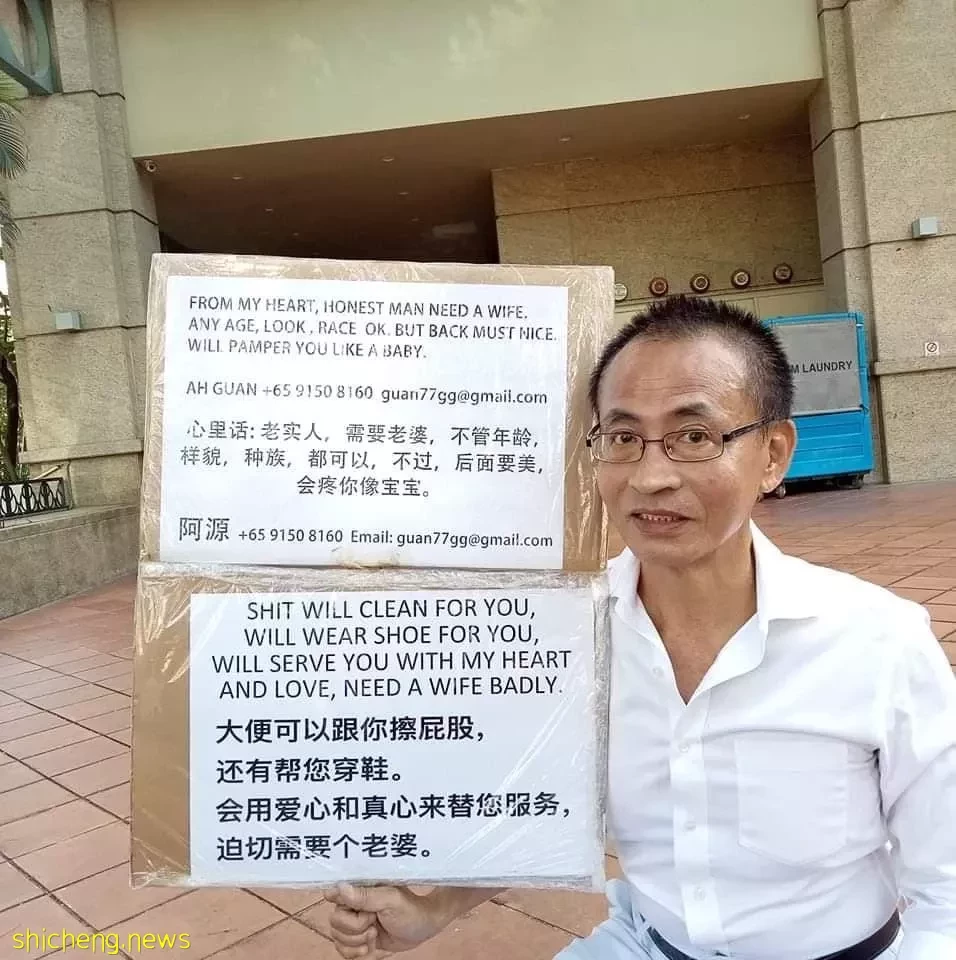 FROM MY HEART, HONEST MAN NEED A WIFE.
ANY AGE, LOOK, RACE OK. BUT BACK MUST NICE.
WILL PAMPER YOU LIKE A BABY.
AH GUAN +65 9150 8160 guan77gg@gmail.com
心里话: 老实人，需要老婆，不管年龄，
样貌，种族，都可以，不过，后面要美，
会疼你像宝宝。
阿源 +65 9150 8160 Email: guan77gg@gmail.com
SHIT WILL CLEAN FOR YOU,
WILL WEAR SHOE FOR YOU,
WILL SERVE YOU WITH MY HEART
AND LOVE, NEED A WIFE BADLY.
大便可以跟你擦屁股，
还有帮您穿鞋。
会用爱心和真心来替您服务，
迫切需要个老婆。
LAUNDRY
shicheng.news